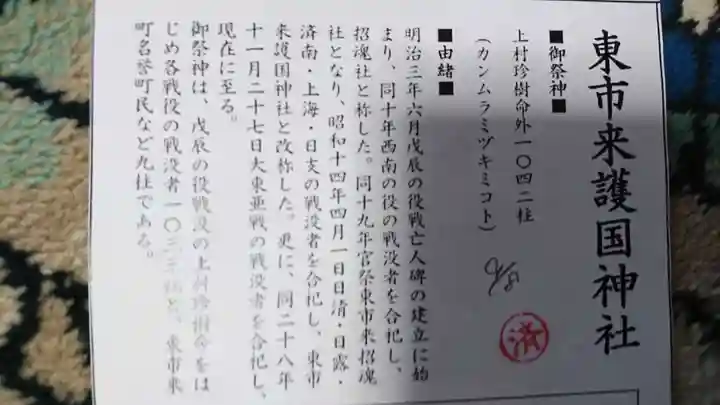 東市来護国神社
■御祭神■
上村珍樹命外一〇四二柱
(カンムラミヅキミコト)
済
■由緒■
明治三年六月戊辰の役戦亡人碑の建立に始
まり、同十年西南の役の戦没者を合祀し、
招魂社と称した。同十九年官祭東市来招魂
社となり、昭和十四年四月一日日清・日露・
済南・上海・日支の戦没者を合祀し、東市
来護国神社と改称した。更に、同二十八年
十一月二十七日大東亜戦の戦没者を合祀し、
現在に至る。
御祭神は、戊辰の役戦没の上村珍樹命をは
じめ各戦役の戦没者一〇三三柱と、東市来
町名誉町民など九柱である。